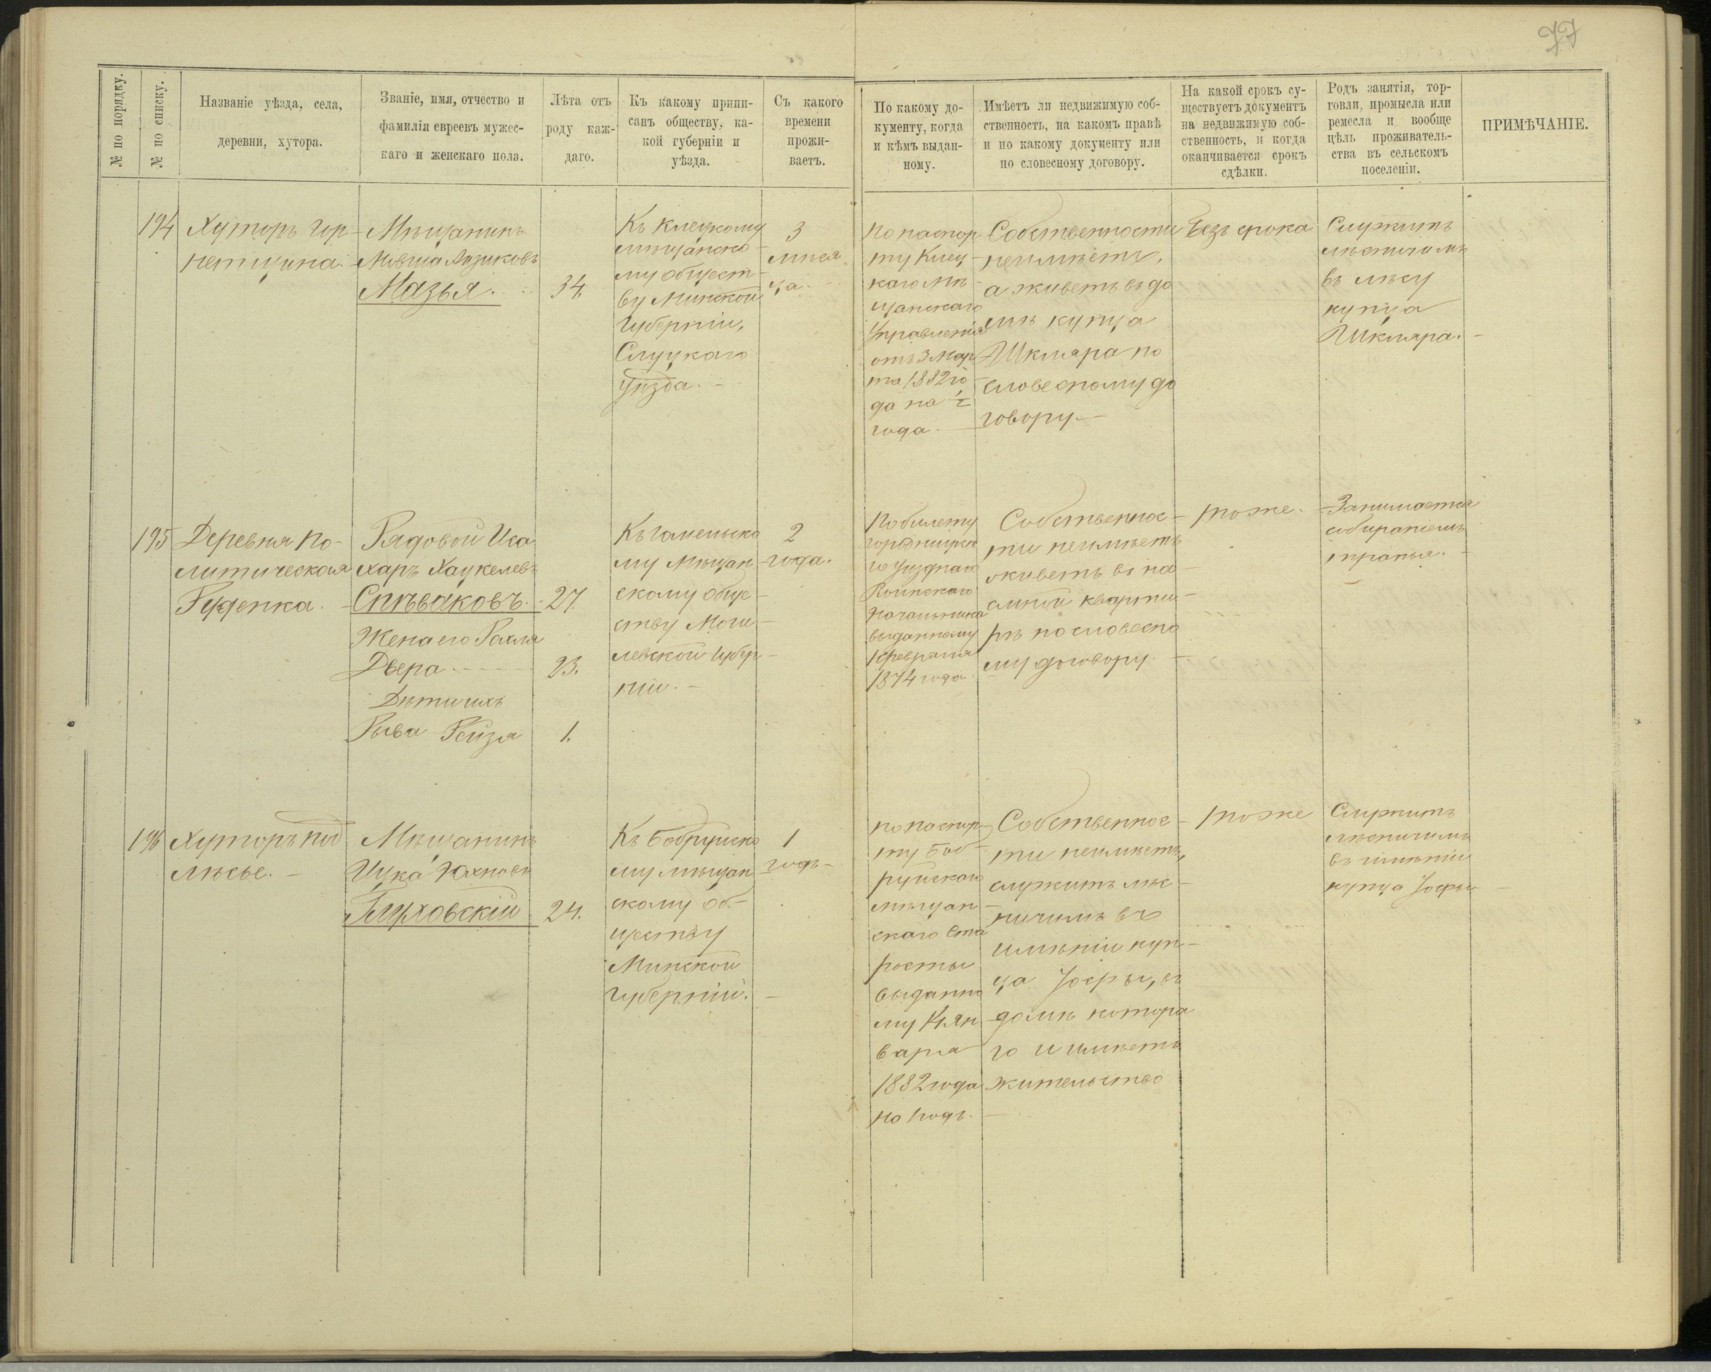 77
№ по порядку.
№ по списку.
Названіе уѣзда, села,
деревни, хутора.
Званіе, имя, отчество и
фамилія евреевъ мужес-
каго и женскаго пола.
Лѣта отъ
роду каж-
даго.
Къ какому припи-
санъ обществу, ка-
кой губерніи и
уѣзда.
Съ какого
времени
прожи-
ваетъ.
По какому до-
кументу, когда
и кѣмъ выдан-
ному.
Имѣетъ ли недвижимую соб-
ственность, на какомъ правѣ
и по какому документу или
по словесному договору.
На какой срокъ су-
ществуетъ документъ
на недвижимую соб-
ственность, и когда
оканчивается срокъ
сдѣлки.
Родъ занятія, тор-
говли, промысла или
ремесла и вообще
цѣль проживатель-
ства въ сельскомъ
поселеніи.
ПРИМѢЧАНІЕ.
194
Хуторъ Гор-
Мѣщанинъ
Мовша
Мазья.
34
Къ Клецкому
мѣщанско-
му общест-
ву Минской
Губерніи,
Слуцкаго
Уѣзда.
3
мѣся
ца.
По паспор
ту Клец-
каго мѣ-
щанскаго
Управленія
отъ 3 Мар
та 1882 го
да на ½
года.
Собственности
неимѣетъ,
а живетъ въ до
мѣ купца
Шкляра по
словесному до
говору.
Безъ срока
Служитъ
лѣсничимъ
въ лѣсу
купца
Шкляра.
195
Деревня По-
литическая
Руденка.
Рядовой Иса
харъ Хацкелевъ
Спѣваковъ.
27
Жена его Рахля
Двера
23.
Дѣти ихъ
Рыва Рейзя
1.
му мѣщан
скому обще-
ству Моги-
левской губер-
ніи.
2
года.
По билету
го Уѣзднаго
Воинскаго
Начальника
выданному
1 Февраля
1874 года
Собственнос-
ти неимѣетъ
живетъ въ на-
емной кварти-
рѣ по словесно
му договору.
тоже.
Занимается
собираніемъ
тряпья.
196
Хуторъ Под
лѣсье.
Мѣщанинъ
Ицка Юхновъ
Глуховскій
24.
Къ Бобруйско
му мѣщан
скому об-
ществу
Минской
губерніи.
1
годъ
По паспор-
ту Боб-
руйскаго
мѣщан-
скаго Ста
росты
выданно
му Ян
варя
1882 года
на 1 годъ.
Собственнос-
ти неимѣетъ,
служитъ лѣс-
ничимъ въ
имѣніи куп-
ца Іофры, въ
домѣ котора
го и имѣетъ
жительство
тоже
Служитъ
лѣсничимъ
въ имѣніи
купца Іофры